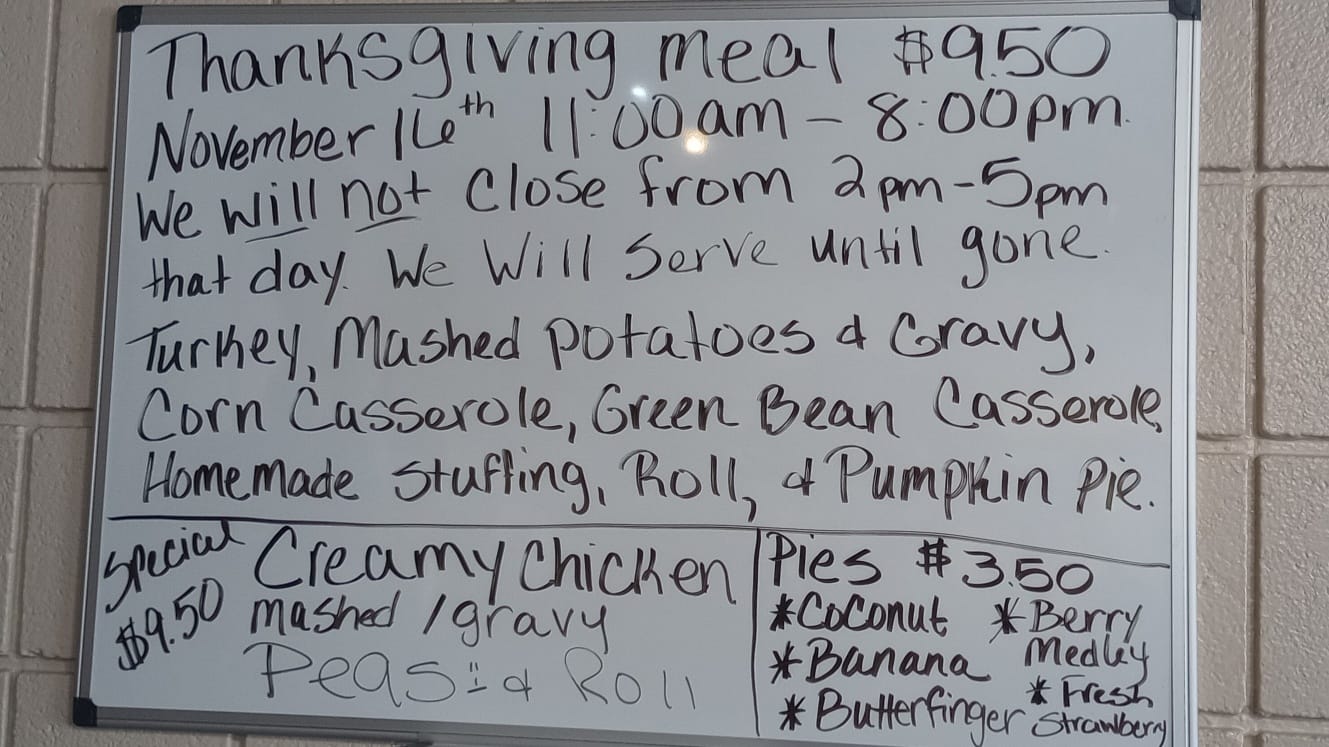 Thanksgiving meal $9.50
November 16th 11:00am - 8:00pm.
We will not close from 2pm-5pm
that day. We Will Serve until gone.
Turkey, Mashed potatoes & Gravy,
Corn Casserole, Green Bean Casserole,
Homemade stuffing, Roll, & Pumpkin Pie.
Special
$9.50
Creamy Chicken
mashed /gravy
Peas & Roll
Pies $3.50
*Coconut
*Banana
*Butterfinger
*Berry
Medley
*Fresh
Strawberry